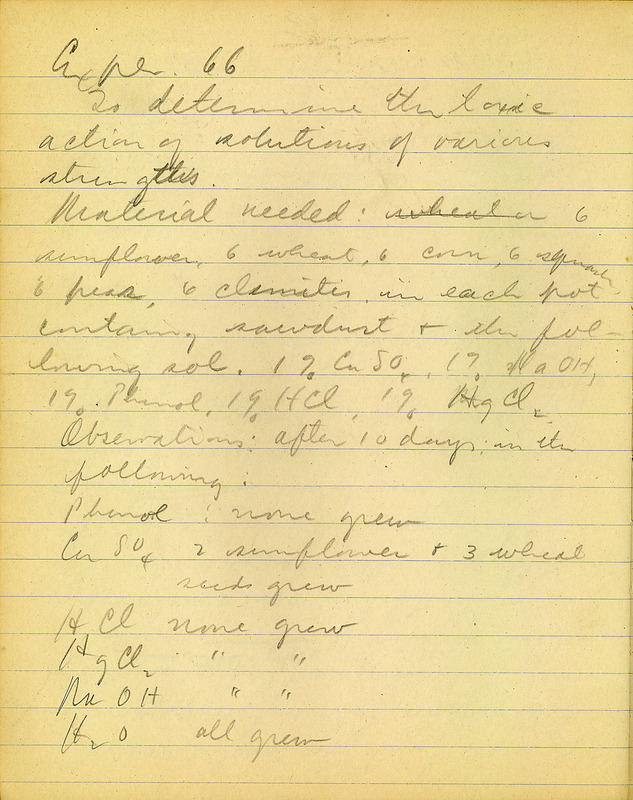 Exper. 66
To determine the toxic
action of solutions of various
strengths.
Material needed: wheat or 6
sunflower, 6 wheat, 6 corn, 6 squash,
6 peas, 6 in each pot
containing sawdust + the fol-
lowing sol. 1% CuSO4, 1% NaOH,
1% Phenol, 1% HCl, 1% HgCl2
Observations: after 10 days in the
following:
Phenol : none grew
CuSO4 2 sunflower + 3 wheat
seeds grew
HCl none grew
HgCl2 " "
NaOH " "
H2O all grew